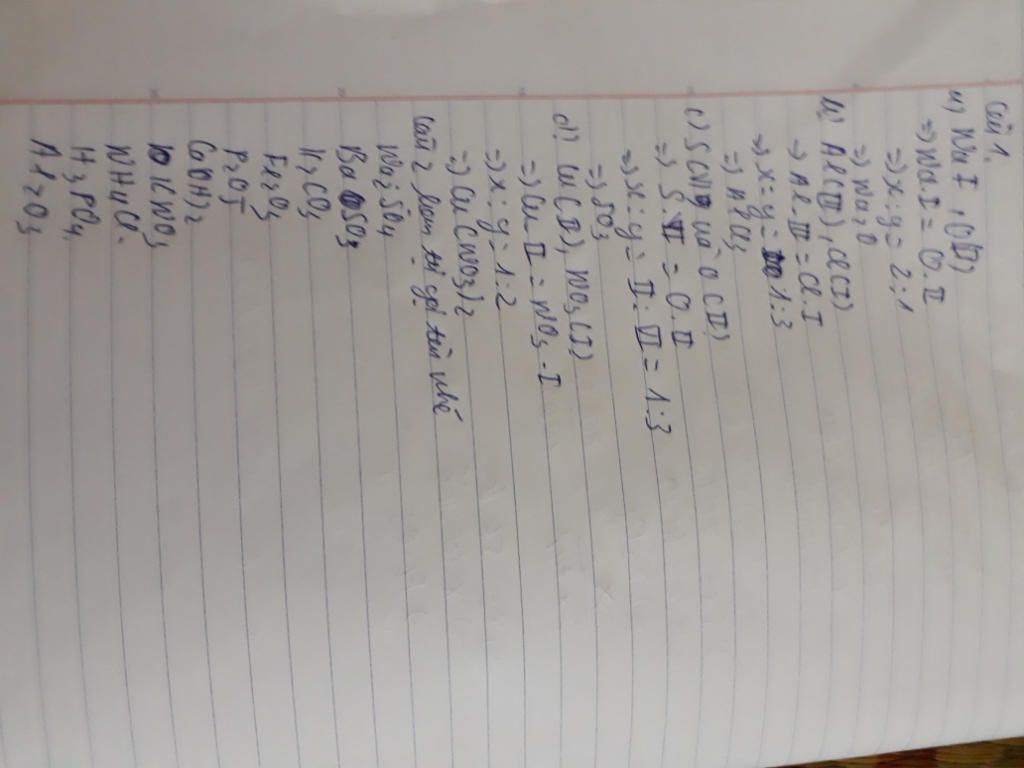 Câu 1.
a) Na I, O(II)
=) Na.I = O.II
=) x:y = 2:1
=) Na2O
b) Al(III), Cl(I)
=) Al.III = Cl.I
=) x:y = 1:3
=) AlCl3
c) S(VI) và O(II)
=) S.VI = O.II
=) x:y = II:VI = 1:3
=) SO3
d) Cu(II), NO3(I)
=) Cu.II = NO3.I
=) x:y = 1:2
=) Cu(NO3)2
Câu 2
Na2SO4
Ba SO3
K2CO3
Fe2O3
P2O5
Ca(OH)2
KNO3
NH4Cl.
H3PO4
Al2O3